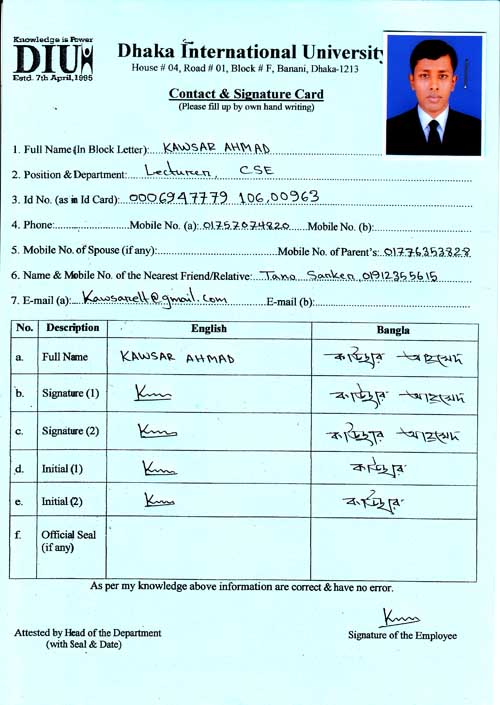 Knowledge is Power
DIU
Estd. 7th April, 1995
Dhaka International University
House # 04, Road # 01, Block # F, Banani, Dhaka-1213
Contact & Signature Card
(Please fill up by own hand writing)
1. Full Name (In Block Letter): KAWSAR AHMAD
2. Position & Department: Lecturer, CSE
3. Id No. (as in Id Card): 0006947779 106,00963
4. Phone: Mobile No. (a): 01757074820 Mobile No. (b):
5. Mobile No. of Spouse (if any): Mobile No. of Parent's: 01776353828
6. Name & Mobile No. of the Nearest Friend/Relative: 01912355615
7. E-mail (a): E-mail (b):
No. Description English Bangla
a. Full Name KAWSAR AHMAD কাউছার আহমেদ
b. Signature (1) কাউছার আহমেদ
c. Signature (2) কাউছার আহমেদ
d. Initial (1) কাউছার
e. Initial (2) কাউছার
f. Official Seal
(if any)
As per my knowledge above information are correct & have no error.
Attested by Head of the Department
(with Seal & Date)
Signature of the Employee